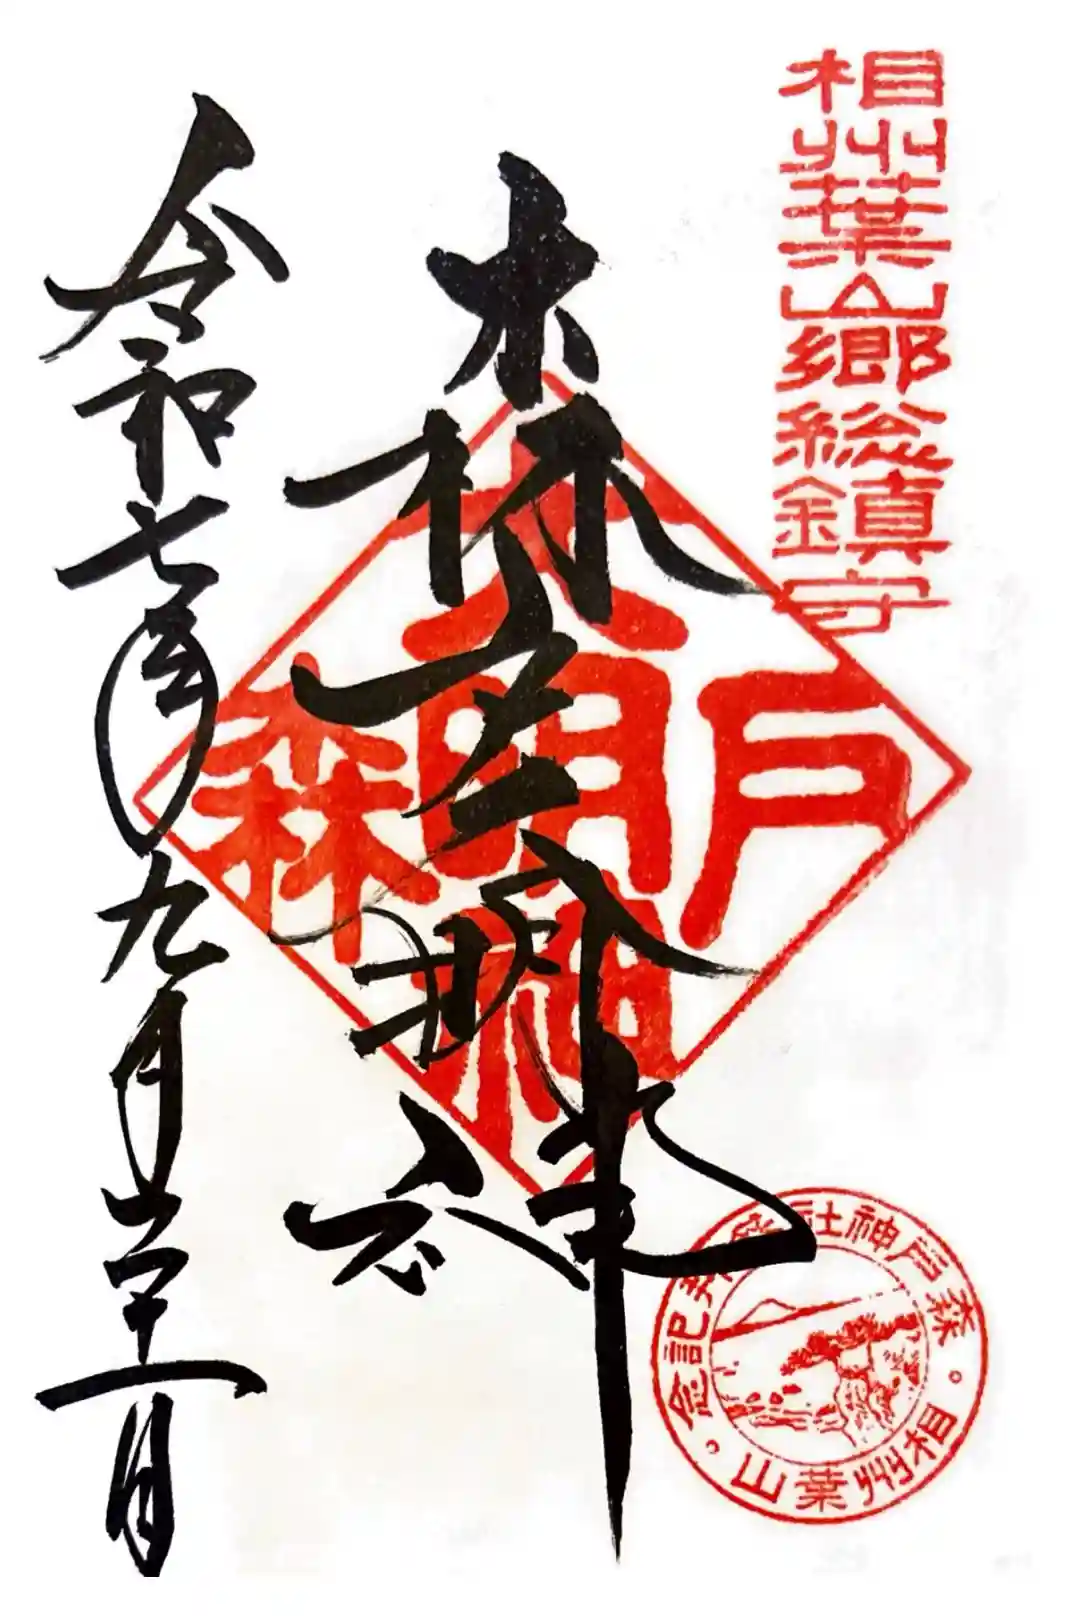 相州葉山郷総鎮守
森戸大明神
森戸大明神
森戸神社参拝記念
相州葉山
令和七年九月二十一日